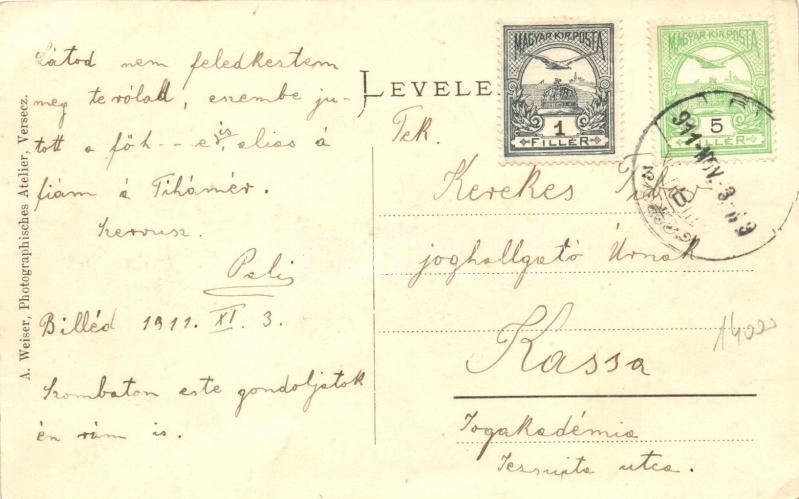 A. Weiser, Photographisches Atelier, Versecz.
Látod nem feledkeztem
meg terólad, eszembe ju-
tott a főh -- e is, alias á
fiám á Tihámér.
Szervusz.
Pali
Billéd 1911. XI. 3.
Szombaton este gondoljatok
én rám is.
LEVELE
MAGYAR KIR. POSTA
1
FILLÉR
MAGYAR KIR. POSTA
5
FILLÉR
911 NOV. 3
Tek.
Kerekes
joghallgató Úrnak
Kassa
Jogakadémia
Jezsuita utca.
1400